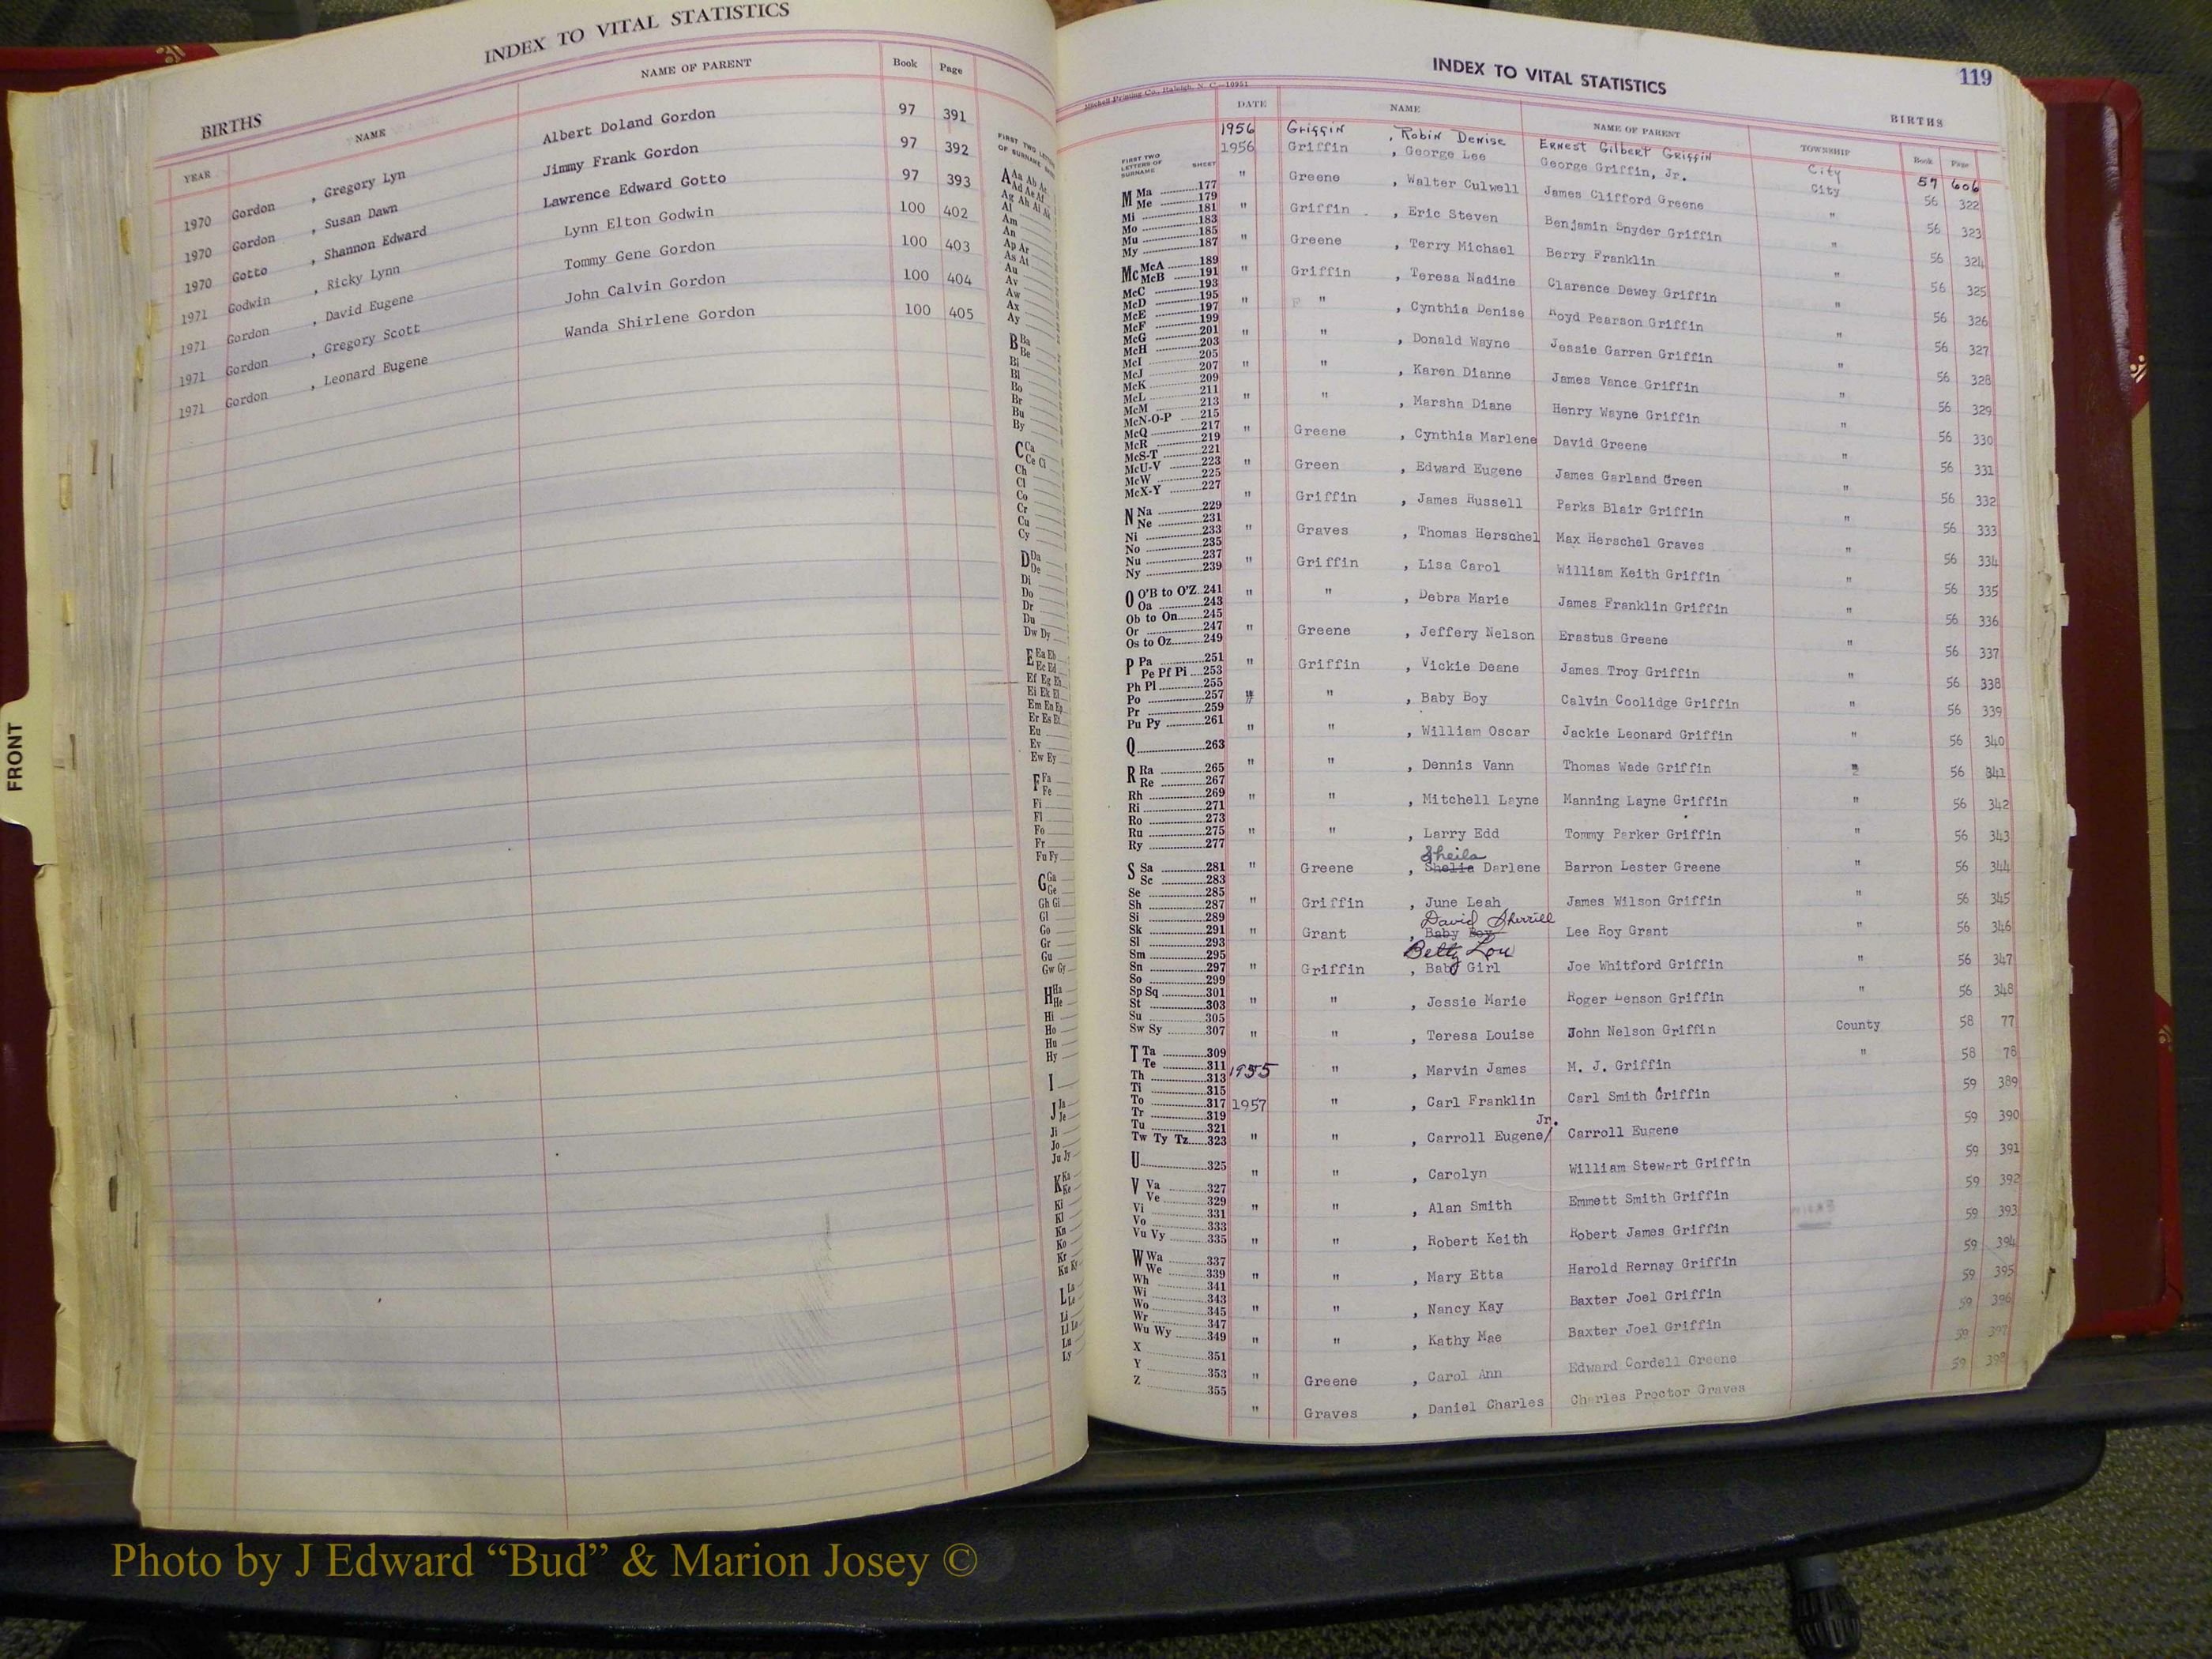 INDEX TO VITAL STATISTICS
BIRTHS
YEAR NAME NAME OF PARENT Book Page
1970 Gordon , Gregory Lyn Albert Doland Gordon 97 391
1970 Gordon , Susan Dawn Jimmy Frank Gordon 97 392
1970 Gotto , Shannon Edward Lawrence Edward Gotto 97 393
1971 Godwin , Ricky Lynn Lynn Elton Godwin 100 402
1971 Gordon , David Eugene Tommy Gene Gordon 100 403
1971 Gordon , Gregory Scott John Calvin Gordon 100 404
1971 Gordon , Leonard Eugene Wanda Shirlene Gordon 100 405
FRONT
FIRST TWO LETTERS
OF SURNAME
A Aa Ab Ac
Ad Ae Af
Ag Ah Ai Ak
Al
Am
An
Ap Ar
As At
Au
Av
Aw
Ax
Ay
B Ba
Be
Bi
Bl
Bo
Br
Bu
By
C Ca
Ce Ci
Ch
Cl
Co
Cr
Cu
Cy
D Da
De
Di
Do
Dr
Du
Dw Dy
E Ea Eb
Ec Ed
Ef Eg Eh
Ei Ek El
Em En Ep
Er Es Et
Eu
Ev
Ew Ey
F Fa
Fe
Fi
Fl
Fo
Fr
Fu Fy
G Ga
Ge
Gh Gi
Gl
Go
Gr
Gu
Gw Gy
H Ha
He
Hi
Ho
Hu
Hy
I
J Ja
Je
Ji
Jo
Ju Jy
K Ka
Ke
Ki
Kl
Kn
Ko
Kr
Ku Ky
L La
Le
Li
Ll Lo
Lu
Ly
INDEX TO VITAL STATISTICS 119
Mitchell Printing Co., Raleigh, N. C.—10951
BIRTHS
DATE NAME NAME OF PARENT TOWNSHIP Book Page
FIRST TWO
LETTERS OF
SURNAME SHEET
M Ma 177
Me 179
Mi 181
Mo 183
Mu 185
My 187
Mc McA 189
McB 191
McC 193
McD 195
McE 197
McF 199
McG 201
McH 203
McI 205
McJ 207
McK 209
McL 211
McM 213
McN-O-P 215
McQ 217
McR 219
McS-T 221
McU-V 223
McW 225
McX-Y 227
N Na 229
Ne 231
Ni 233
No 235
Nu 237
Ny 239
O O'B to O'Z 241
Oa 243
Ob to On 245
Or 247
Os to Oz 249
P Pa 251
Pe Pf Pi 253
Ph Pl 255
Po 257
Pr 259
Pu Py 261
Q 263
R Ra 265
Re 267
Rh 269
Ri 271
Ro 273
Ru 275
Ry 277
S Sa 281
Sc 283
Se 285
Sh 287
Si 289
Sk 291
Sl 293
Sm 295
Sn 297
So 299
Sp Sq 301
St 303
Su 305
Sw Sy 307
T Ta 309
Te 311
Th 313
Ti 315
To 317
Tr 319
Tu 321
Tw Ty Tz 323
U 325
V Va 327
Ve 329
Vi 331
Vo 333
Vu Vy 335
W Wa 337
We 339
Wh 341
Wi 343
Wo 345
Wr 347
Wu Wy 349
X 351
Y 353
Z 355
1956 Griggin , Robin Denise Ernest Gilbert Griffin City 57 606
1956 Griffin , George Lee George Griffin, Jr. City 56 322
" Greene , Walter Culwell James Clifford Greene " 56 323
" Griffin , Eric Steven Benjamin Snyder Griffin " 56 324
" Greene , Terry Michael Berry Franklin " 56 325
" Griffin , Teresa Nadine Clarence Dewey Griffin " 56 326
" " , Cynthia Denise Hoyd Pearson Griffin " 56 327
" , Donald Wayne Jessie Garren Griffin " 56 328
" " , Karen Dianne James Vance Griffin " 56 329
" " , Marsha Diane Henry Wayne Griffin " 56 330
" Greene , Cynthia Marlene David Greene " 56 331
" Green , Edward Eugene James Garland Green " 56 332
" Griffin , James Russell Parks Blair Griffin " 56 333
" Graves , Thomas Herschel Max Herschel Graves " 56 334
" Griffin , Lisa Carol William Keith Griffin " 56 335
" " , Debra Marie James Franklin Griffin " 56 336
" Greene , Jeffery Nelson Erastus Greene " 56 337
" Griffin , Vickie Deane James Troy Griffin " 56 338
" " , Baby Boy Calvin Coolidge Griffin " 56 339
" " , William Oscar Jackie Leonard Griffin " 56 340
" " , Dennis Vann Thomas Wade Griffin " 56 341
" " , Mitchell Layne Manning Layne Griffin " 56 342
" " , Larry Edd Tommy Parker Griffin " 56 343
Sheila
" Greene , Shelia Darlene Barron Lester Greene " 56 344
" Griffin , June Leah James Wilson Griffin " 56 345
David Sherrill
" Grant , Baby Boy Lee Roy Grant " 56 346
Betty Lou
" Griffin , Baby Girl Joe Whitford Griffin " 56 347
" " , Jessie Marie Roger Benson Griffin " 56 348
" " , Teresa Louise John Nelson Griffin County 58 77
1955 " , Marvin James M. J. Griffin " 58 78
1957 " , Carl Franklin Carl Smith Griffin 59 389
Jr.
" " , Carroll Eugene/ Carroll Eugene 59 390
" " , Carolyn William Stewart Griffin 59 391
" " , Alan Smith Emmett Smith Griffin 59 392
" " , Robert Keith Robert James Griffin 59 393
" " , Mary Etta Harold Rernay Griffin 59 394
" " , Nancy Kay Baxter Joel Griffin 59 395
" " , Kathy Mae Baxter Joel Griffin 59 396
" Greene , Carol Ann Edward Cordell Greene 59 397
" Graves , Daniel Charles Charles Proctor Graves 59 398
Photo by J Edward “Bud” & Marion Josey ©